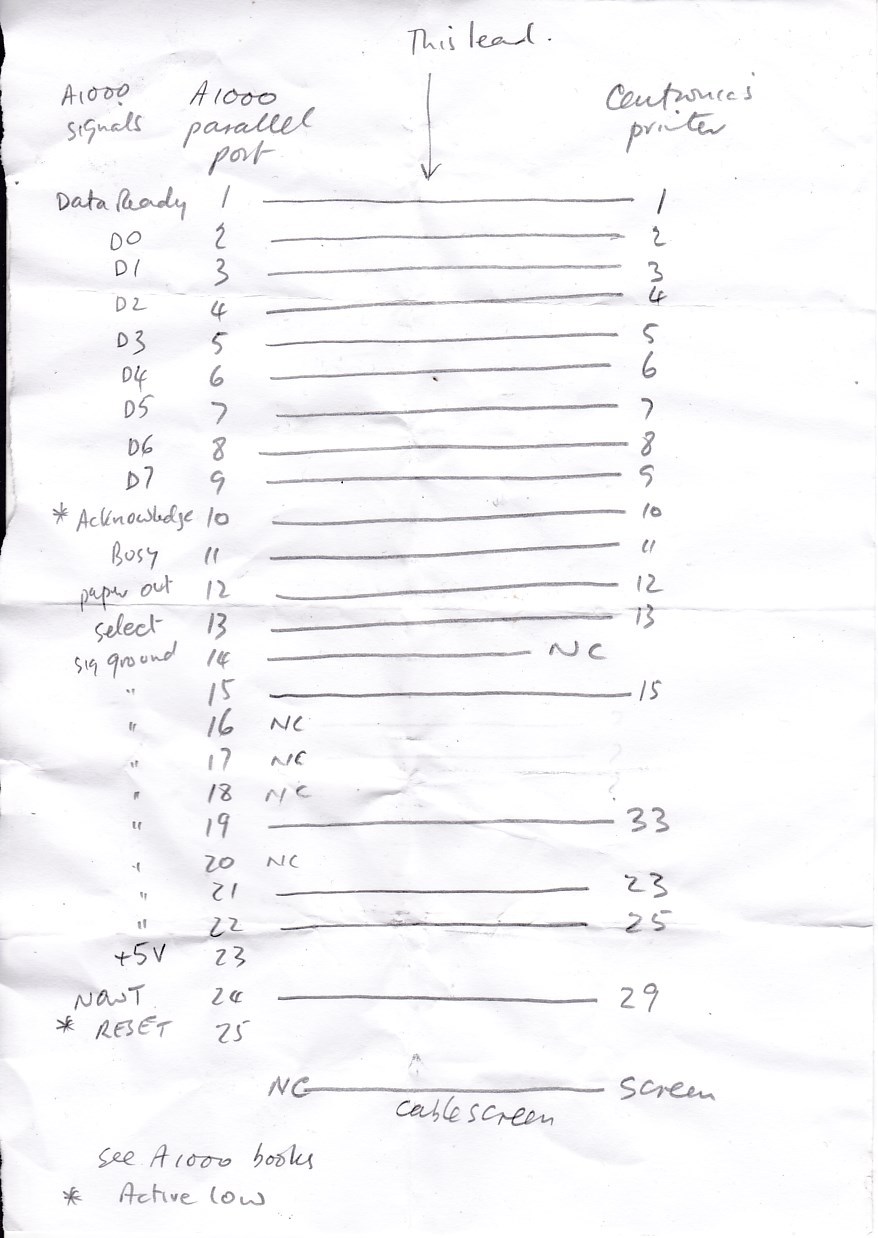 This lead.
A1000 signals A1000 parallel port Centronics printer
Data Ready 1 1
D0 2 2
D1 3 3
D2 4 4
D3 5 5
D4 6 6
D5 7 7
D6 8 8
D7 9 9
* Acknowledge 10 10
Busy 11 11
paper out 12 12
select 13 13
sig ground 14 NC
" 15 15
" 16 NC
" 17 NC
" 18 NC
" 19 33
" 20 NC
" 21 23
" 22 25
+5V 23
NOWT 24 29
* RESET 25
NC Screen
cable screen
see A1000 books
* Active low